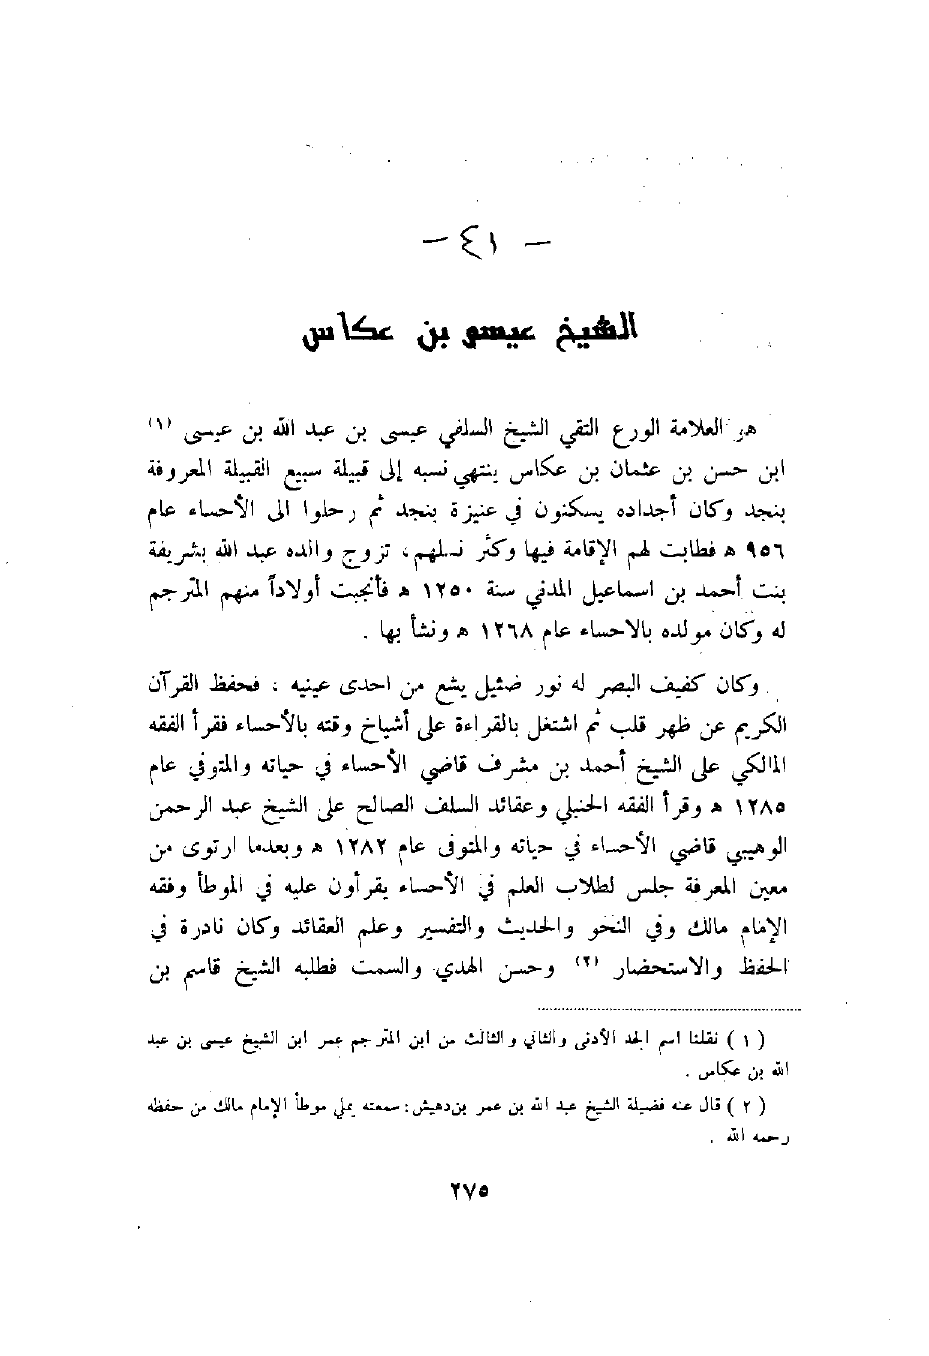 — ٤١ —
الشيخ عيسى بن عكاس
هو العلامة الورع التقي الشيخ السلفي عيسى بن عبد الله بن عيسى (١)
ابن حسن بن عثمان بن عكاس ينتهي نسبه إلى قبيلة سبيع القبيلة المعروفة
بنجد وكان أجداده يسكنون في عنيزة بنجد ثم رحلوا الى الأحساء عام
٩٥٦ ه فطابت لهم الإقامة فيها وكثر نسلهم، تزوج والده عبد الله بشريفة
بنت أحمد بن اسماعيل المدني سنة ١٢٥٠ ه فأنجبت أولاداً منهم المترجم
له وكان مولده بالاحساء عام ١٢٦٨ ه ونشأ بها .
وكان كفيف البصر له نور ضئيل يشع من احدى عينيه ، فحفظ القرآن
الكريم عن ظهر قلب ثم اشتغل بالقراءة على أشياخ وقته بالأحساء فقرأ الفقه
المالكي على الشيخ أحمد بن مشرف قاضي الأحساء في حياته والمتوفي عام
١٢٨٥ ه وقرأ الفقه الحنبلي وعقائد السلف الصالح على الشيخ عبد الرحمن
الوهيبي قاضي الأحساء في حياته والمتوفى عام ١٢٨٢ ه وبعدما ارتوى من
معين المعرفة جلس لطلاب العلم في الأحساء يقرأون عليه في الموطأ وفقه
الإمام مالك وفي النحو والحديث والتفسير وعلم العقائد وكان نادرة في
الحفظ والاستحضار (٢) وحسن الهدي والسمت فطلبه الشيخ قاسم بن
( ١ ) نقلنا اسم الجد الأدنى والثاني والثالث من ابن المترجم عمر ابن الشيخ عيسى بن عبد
الله بن عكاس .
( ٢ ) قال عنه فضيلة الشيخ عبد الله بن عمر بن دهيش : سمعته يملي موطأ الإمام مالك من حفظه
رحمه الله .
٢٧٥